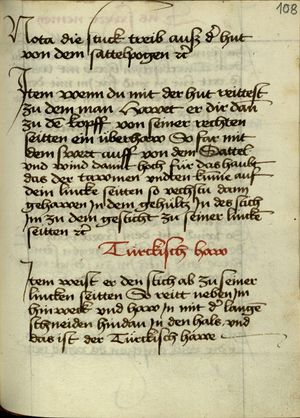 108
Nota die stuck treib auß der hut
von dem sattelpogen etc
Item wenn du mit der hut reittest
zu dem man hawet er dir dan
zu dem kopff von seiner rechten
seitten ein überhaw So far mit
dem swert auff von dem Sattel
und wind damit hoch für das haubt
das der dawmen unden kume auf
dein lincke seitten so wechstu dann
gehawen in dem gehültz In des stich
Im zu dem gesicht zu seiner lincken
seitten etc
Türckisch haw
Item weist er den stich ab zu seiner
lincken seitten So reitt neben Im
hinweck und haw In mit der langen
schneiden hindan In den hals und
das ist der Türckisch hawe